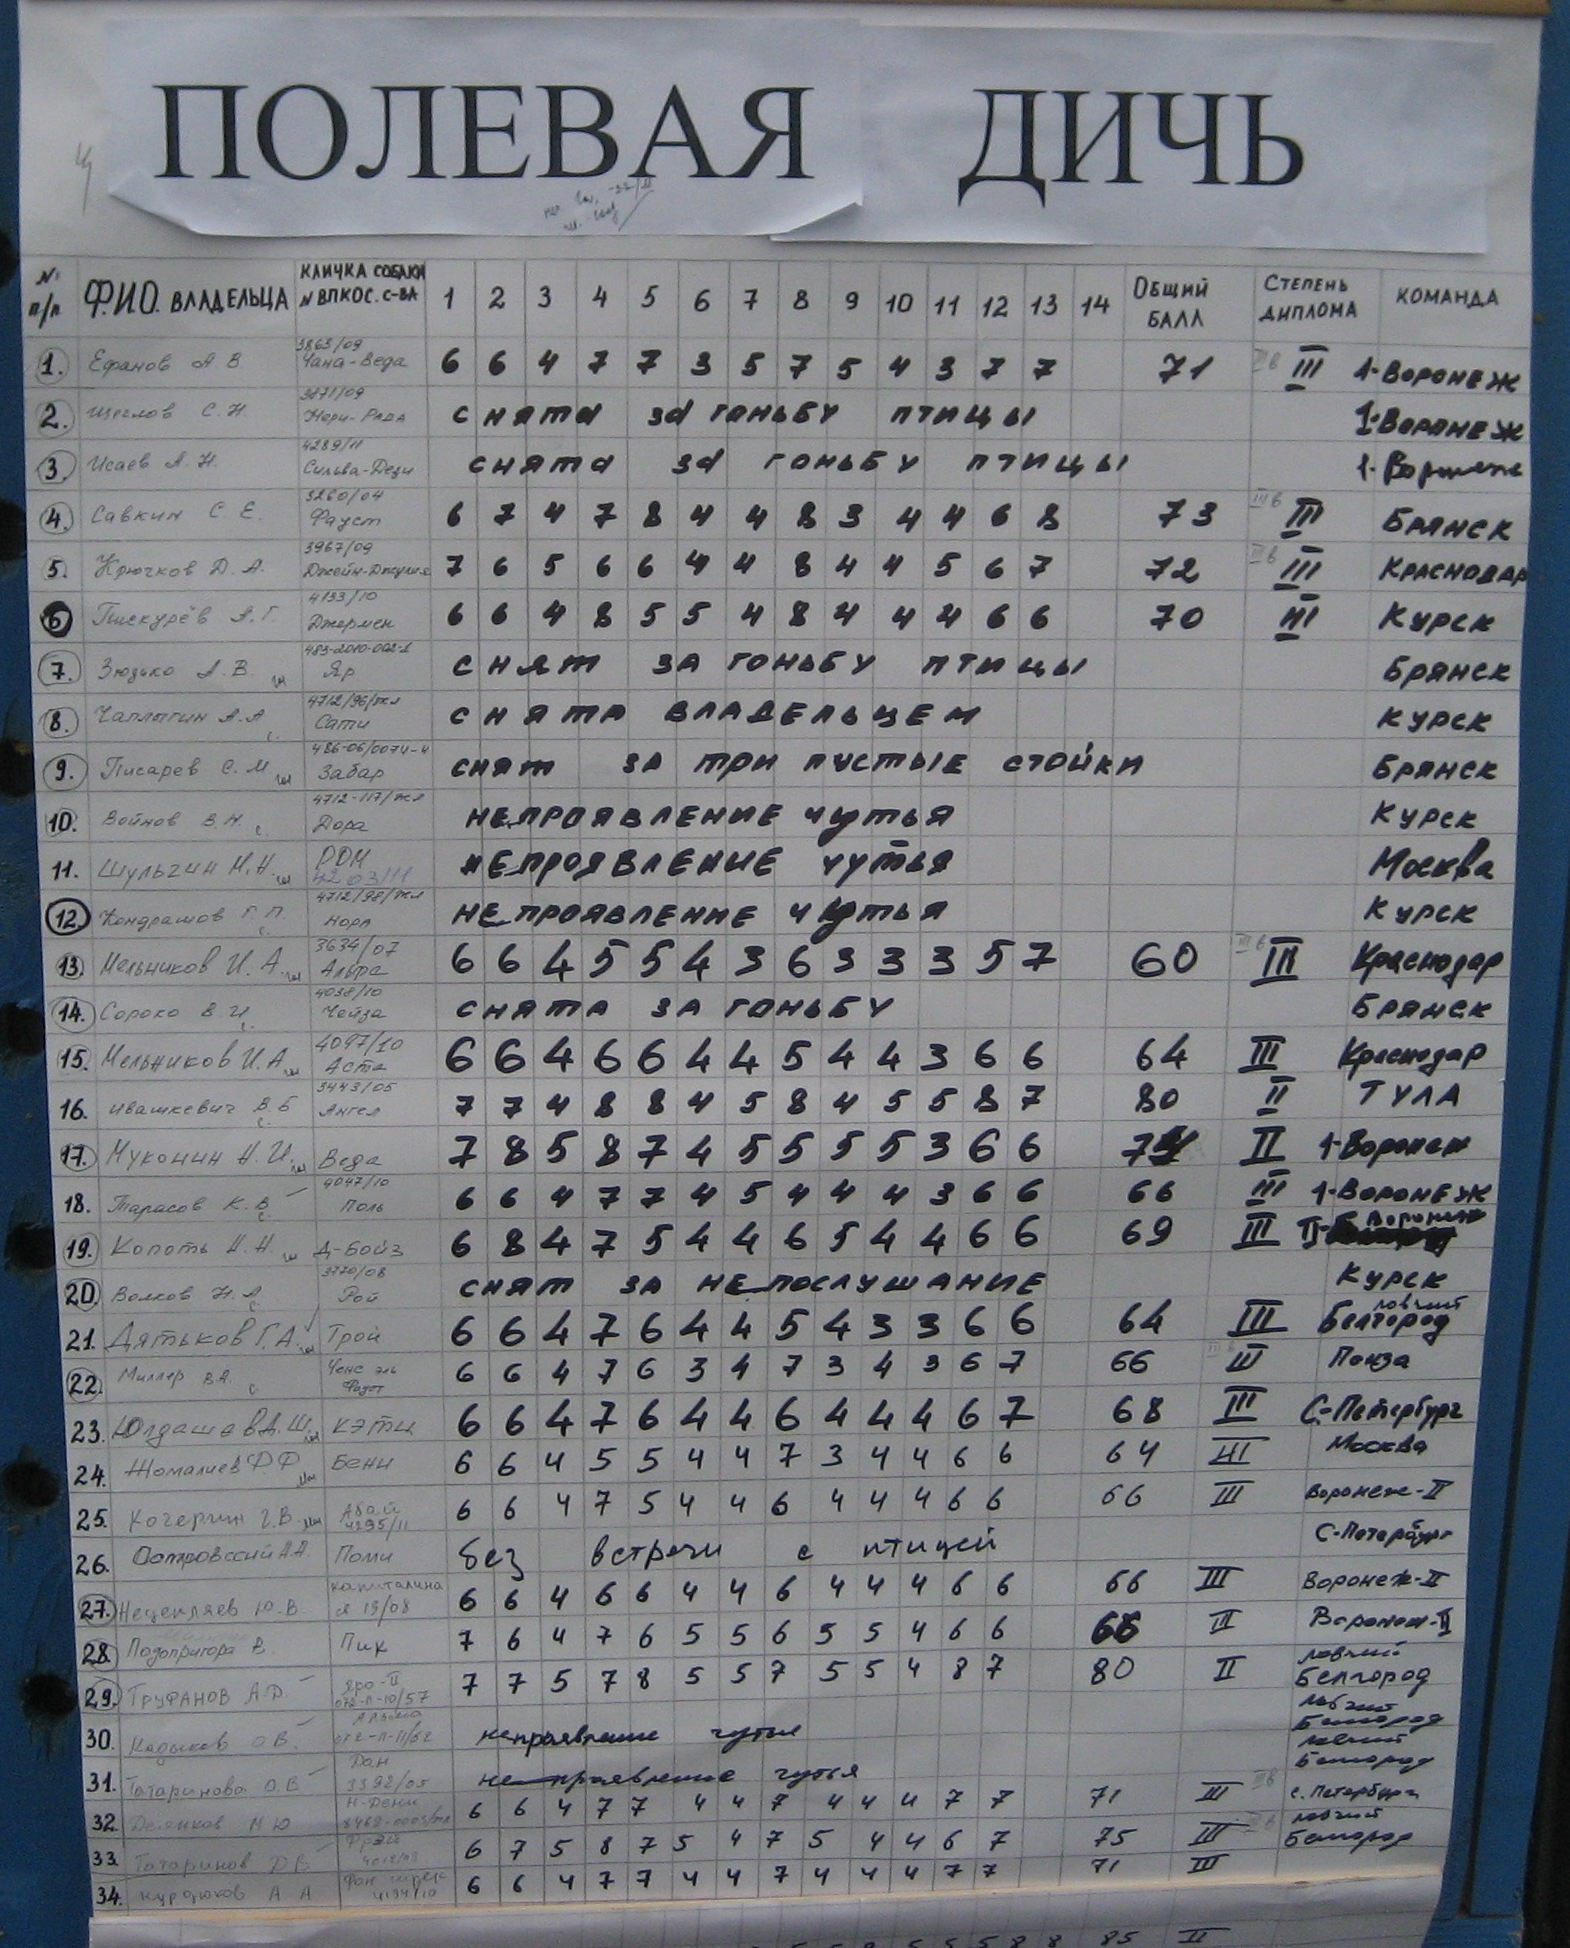 ПОЛЕВАЯ ДИЧЬ
№ п/п Ф.И.О. ВЛАДЕЛЬЦА КЛИЧКА СОБАКИ № ВПКОС. С-ВА 1 2 3 4 5 6 7 8 9 10 11 12 13 14 ОБЩИЙ БАЛЛ СТЕПЕНЬ ДИПЛОМА КОМАНДА
1. Ефанов А В 3863/09 Чана-Веда 6 6 4 7 7 3 5 7 5 4 3 7 7 71 III 1-ВОРОНЕЖ
2. Щеглов С.Н. 3871/09 Нери-Рада снята за гоньбу птицы 1-ВОРОНЕЖ
3. Исаев А.Н. 4289/11 Сильва-Дези снята за гоньбу птицы 1-Воронеж
4. Савкин С. Е. 3260/04 Фауст 6 7 4 7 8 4 4 8 3 4 4 6 8 73 III БРЯНСК
5. Крючков Д.А. 3967/09 Джейн-Джулия 7 6 5 6 6 4 4 8 4 4 5 6 7 72 III КРАСНОДАР
6 Пискурёв А.Г. 4133/10 Джермен 6 6 4 8 5 5 4 8 4 4 4 6 6 70 III КУРСК
7. Зюзько А.В. 483-2010-002-1 Яр снят за гоньбу птицы БРЯНСК
8. Чаплыгин А.А 4712/96/жл Сати снята владельцем КУРСК
9. Писарев С.М 486-06/0074-4 Забар снят за три пустые стойки БРЯНСК
10. Войнов В.Н. 4712-117/жл Дора непроявление чутья КУРСК
11. Шульгин Н.Н. РОН 4203/11 непроявление чутья Москва
12. Кондрашов Г.П. 4712/98/жл Нора непроявление чутья КУРСК
13. Мельников И.А. 3634/07 Альфа 6 6 4 5 5 4 3 6 3 3 3 5 7 60 III Краснодар
14. Сороко В И. 4038/10 Чейза снята за гоньбу БРЯНСК
15. Мельников И.А. 4097/10 Аста 6 6 4 6 6 4 4 5 4 4 3 6 6 64 III Краснодар
16. Ивашкевич В.Б 3443/05 Ангел 7 7 4 8 8 4 5 8 4 5 5 8 7 80 II ТУЛА
17. Муконин Н.И. Веда 7 8 5 8 7 4 5 5 5 5 3 6 6 II 1-Воронеж
18. Тарасов К.В 4047/10 Поль 6 6 4 7 7 4 5 4 4 4 3 6 6 66 III 1-ВОРОНЕЖ
19. Копоть Н.Н. Д-Бойз 6 8 4 7 5 4 4 6 5 4 4 6 6 69 III II-Воронеж
20. Волков Н.А 3770/08 Рой снят за непослушание КУРСК
21. Дятьков Г.А. Трой 6 6 4 7 6 4 4 5 4 3 3 6 6 64 III ловчий Белгород
22. Миллер В.А. Ченс эль Фауст 6 6 4 7 6 3 4 7 3 4 3 6 7 66 III Пенза
23. Юлдашев А.Ш. Кэти 6 6 4 7 6 4 4 6 4 4 4 6 7 68 III С-Петербург
24. Жомалиев Ф Ф Бени 6 6 4 5 5 4 4 7 3 4 4 6 6 64 III Москва
25. Кочергин Г.В. Абай 4295/11 6 6 4 7 5 4 4 6 4 4 4 6 6 66 III Воронеж-II
26. Островский А.А. Поми без встречи с птицей С-Петербург
27. Нецепляев Ю.В. Капиталина 13/08 6 6 4 6 6 4 4 6 4 4 4 6 6 66 III Воронеж-II
28. Подопригора В. Пик 7 6 4 7 6 5 5 6 5 5 4 6 6 68 III Воронеж-II
29. Труфанов А.Д. Яро-II 072-Л-10/57 7 7 5 7 8 5 5 7 5 5 4 8 7 80 II ловчий Белгород
30. Кадыков О В 072-Л-11/62 непроявление чутья ловчий Белгород
31. Татаринова О.В Дан 3392/05 непроявление чутья ловчий Белгород
32. М Ю Н-Дени 6 6 4 7 7 4 4 7 4 4 4 7 7 71 III С.Петербург
33. Татаринов Д.В Фрэй 6 7 5 8 7 5 4 7 5 4 4 6 7 75 III ловчий Белгород
34. А А 4194/10 6 6 4 7 7 4 4 7 4 4 4 7 7 71 III
85 II